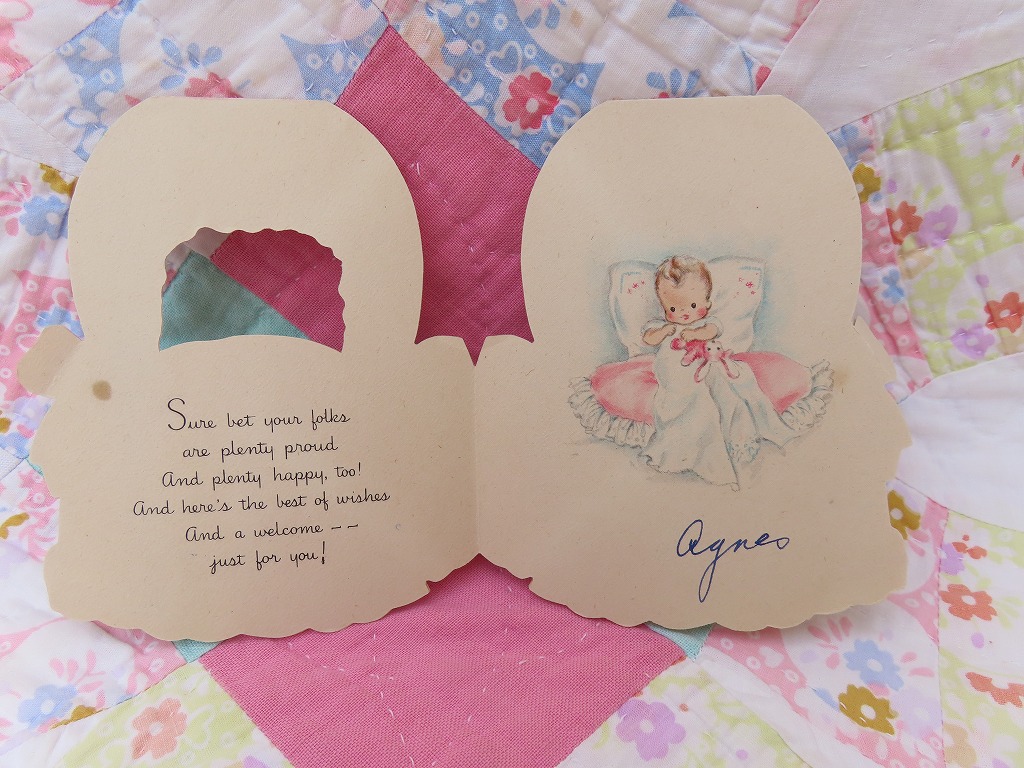 Sure bet your folks
are plenty proud
And plenty happy, too!
And here's the best of wishes
And a welcome – –
just for you!
Agnes